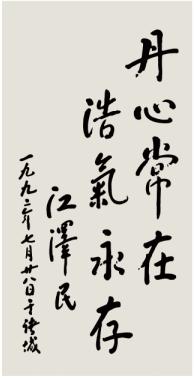 丹心常在
浩氣永存
江澤民
一九九二年七月廿八日于诸城